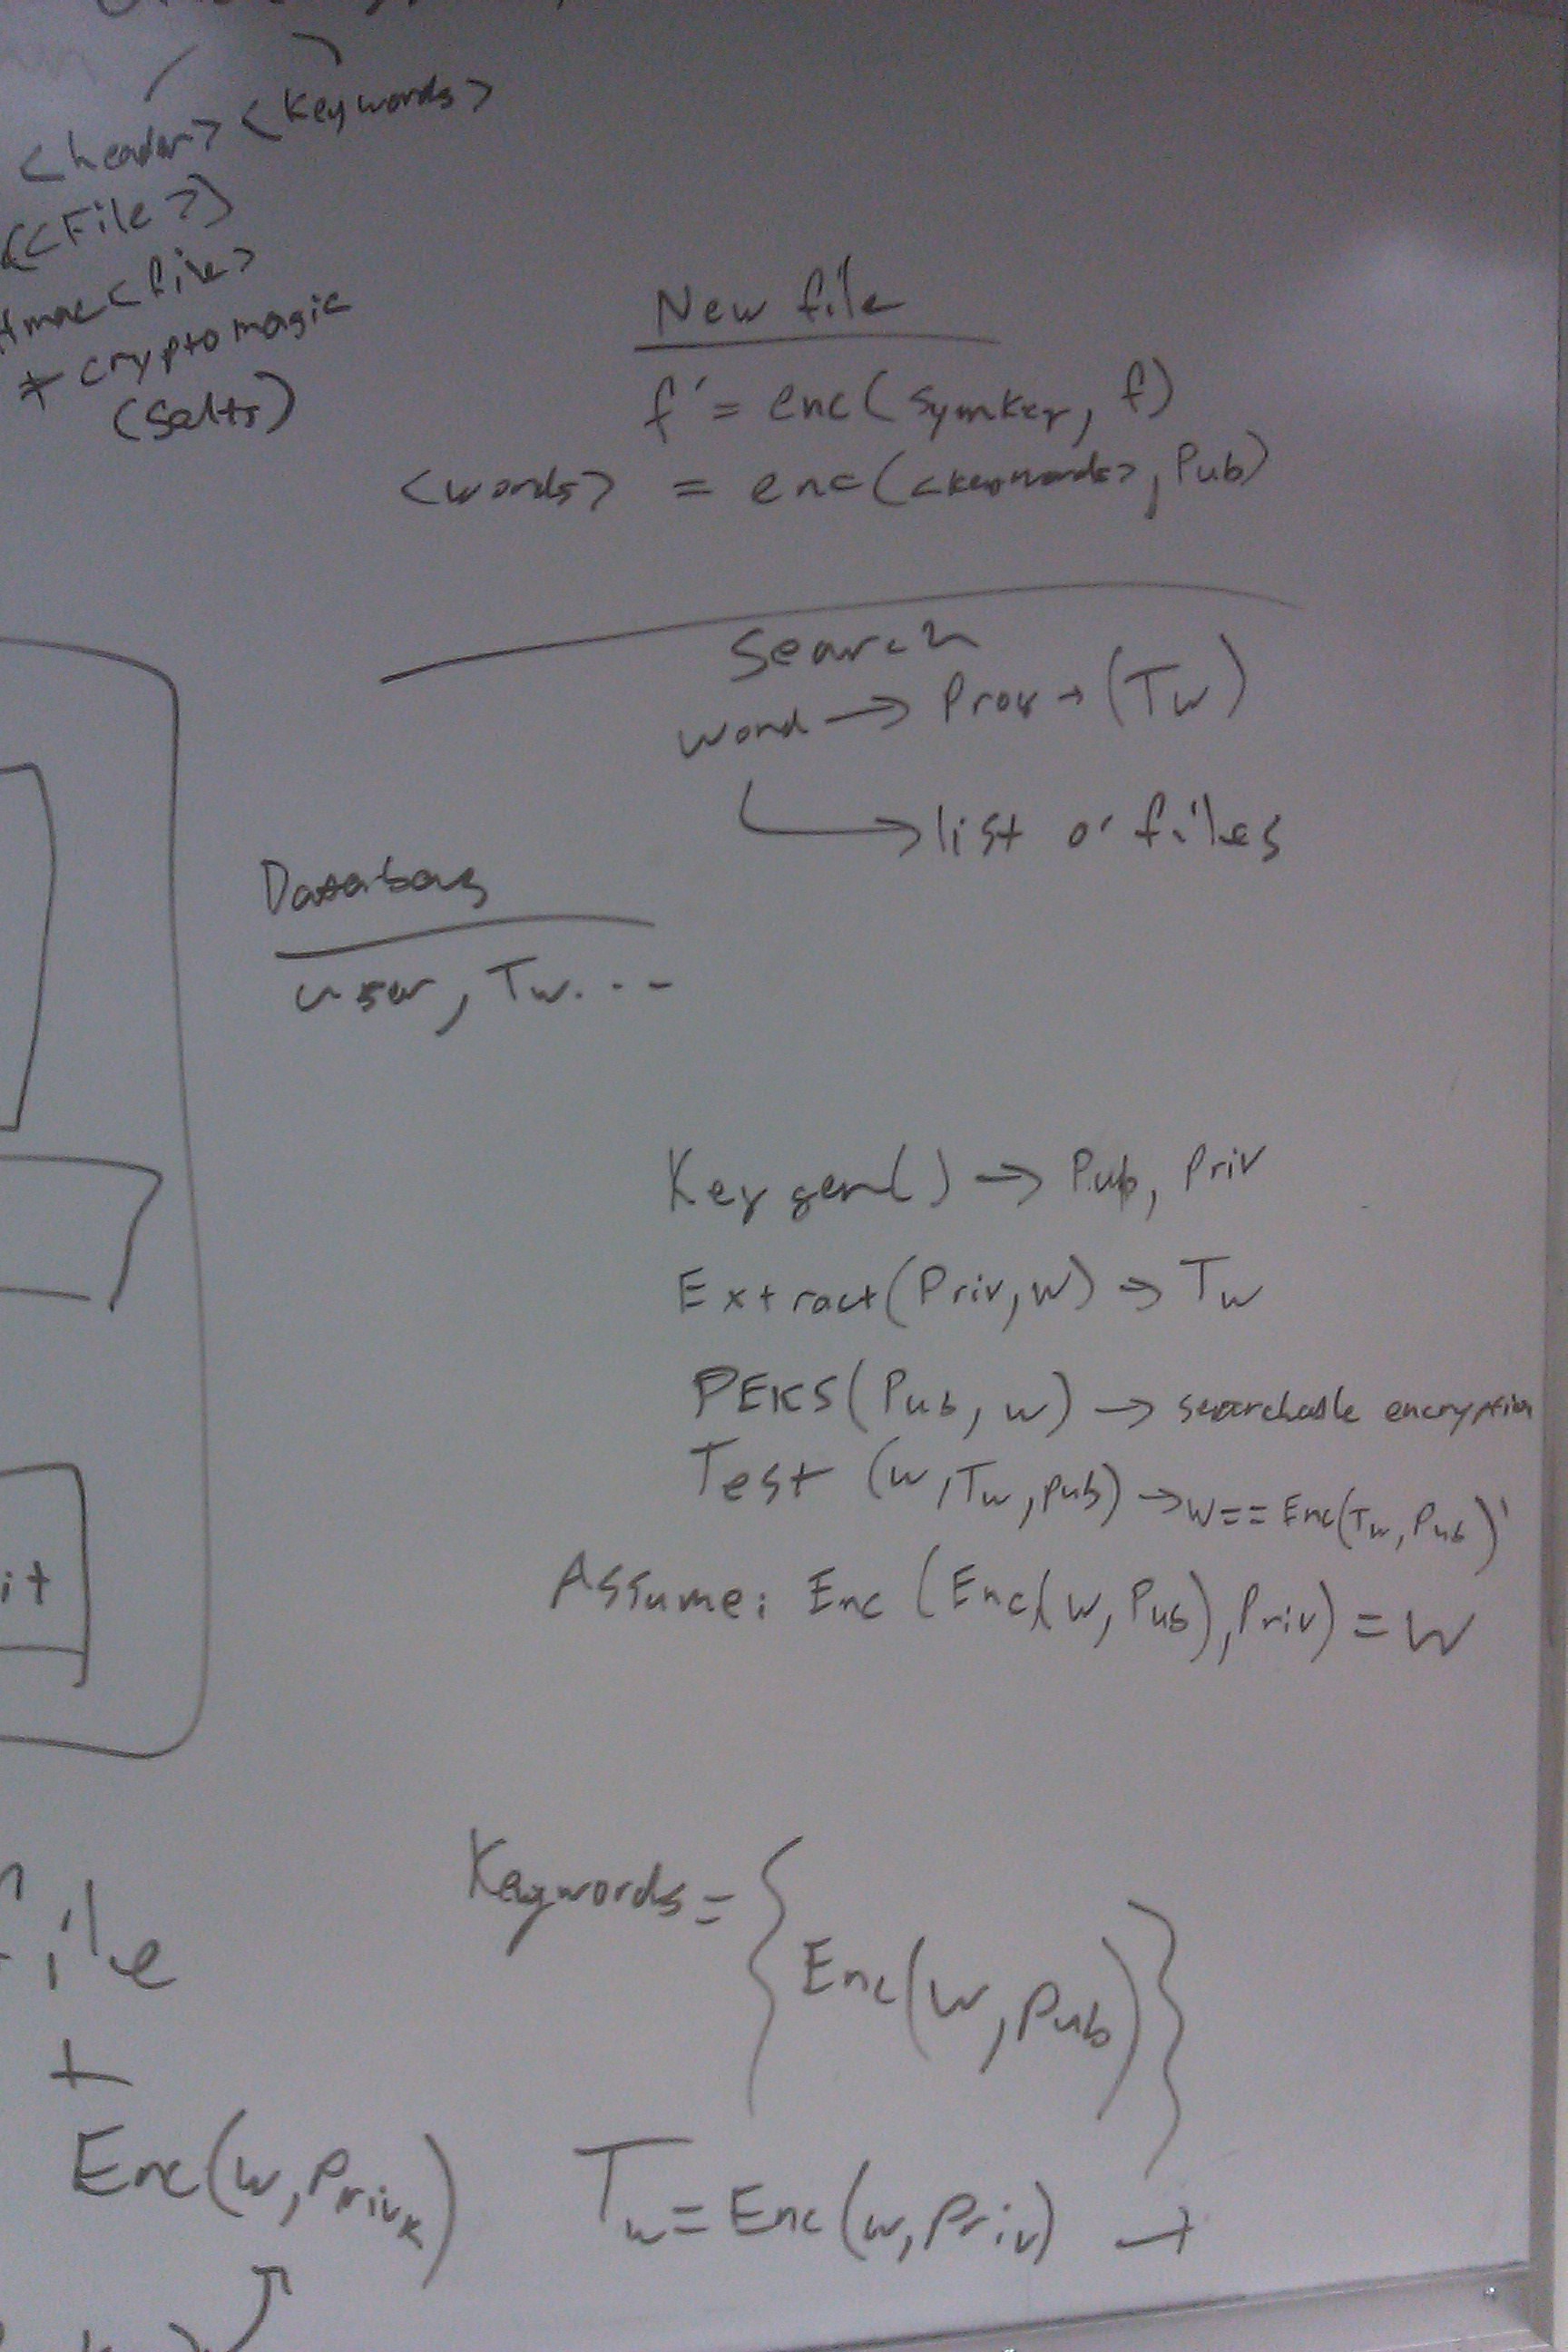 <header> <keywords>
(<File>)
Hmac<file>
+ cryptomagic
(salts)
New file
f' = enc(symkey, f)
<words> = enc(<keywords>, Pub)
Search
word → Prox → (Tw)
→ list of files
Database
user, Tw...
Keygen() → Pub, Priv
Extract(Priv, w) → Tw
PEKS(Pub, w) → searchable encryption
Test (w, Tw, pub) → w == Enc(Tw, Pub)
Assume: Enc(Enc(w, Pub), Priv) = w
it
Keywords = {Enc(w, Pub)}
File
+
Enc(w, Privk)
Tw = Enc(w, Priv) →